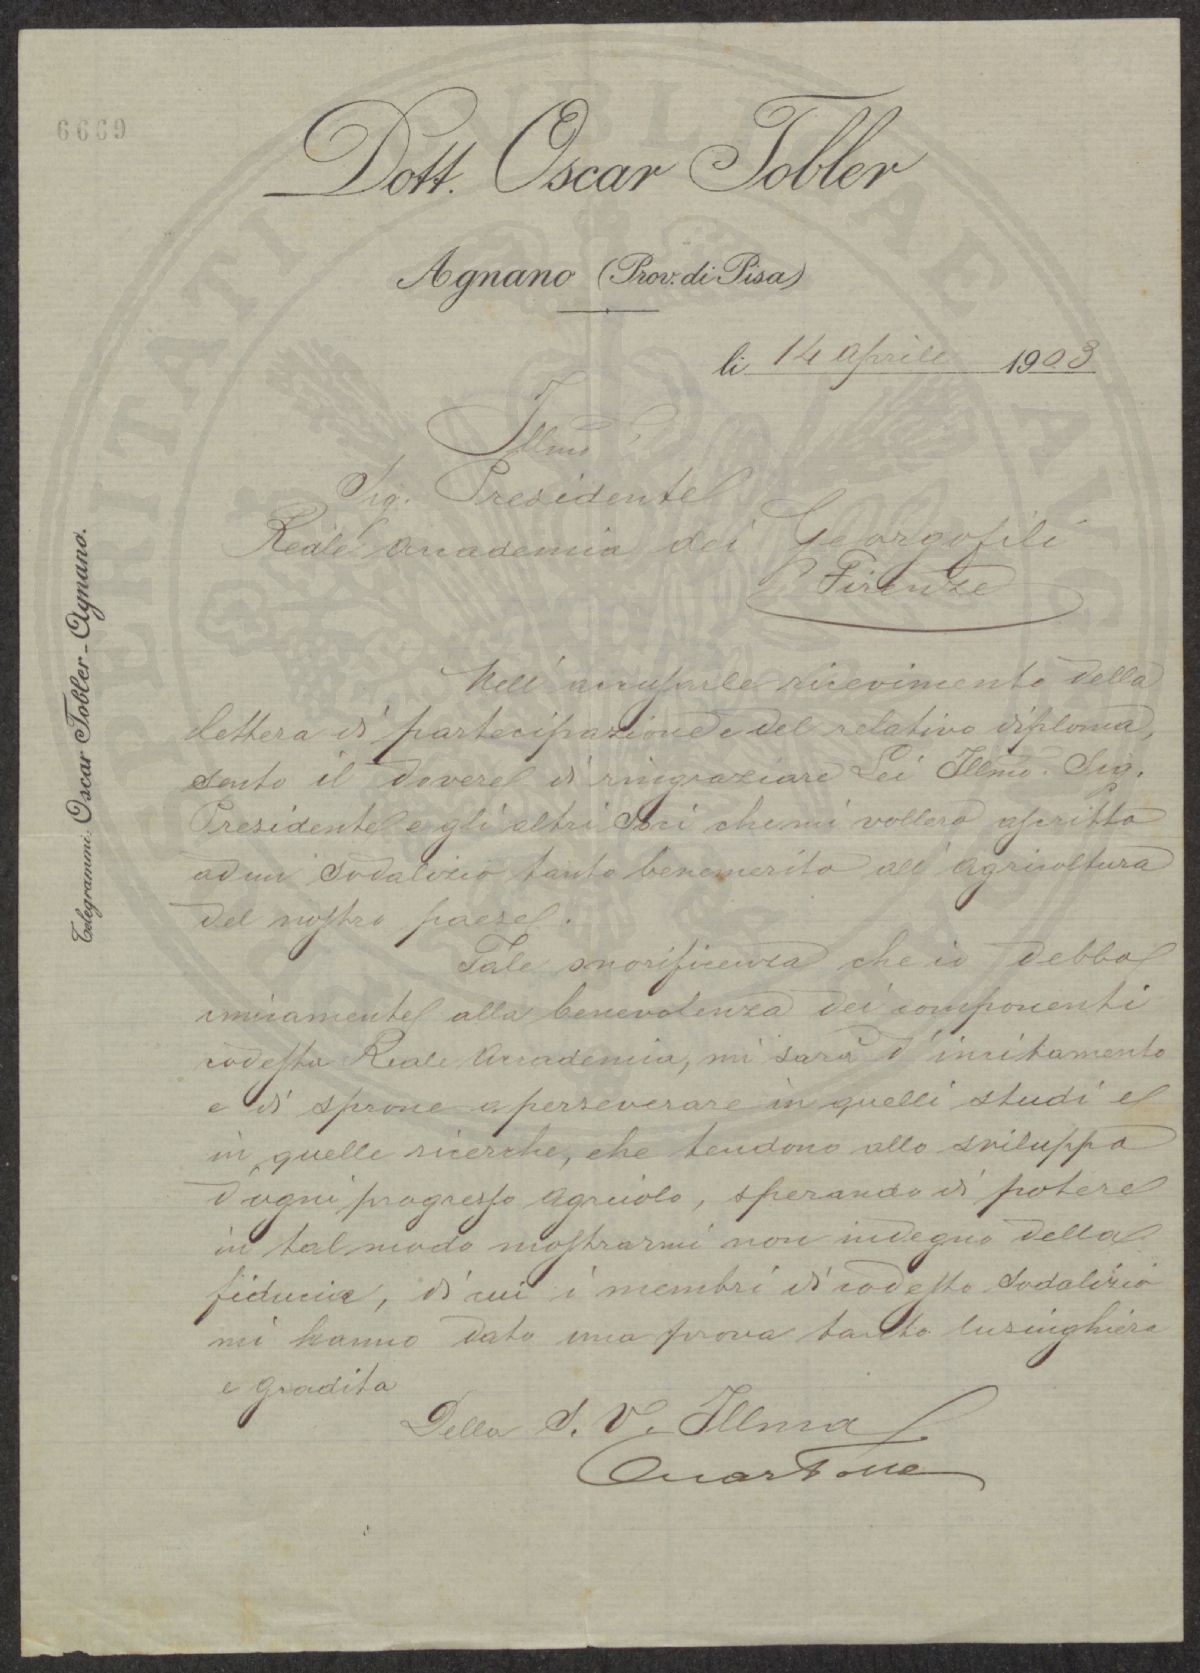 6669
Dott. Oscar Tobler
Agnano (Prov. di Pisa)
li 14 Aprile 1903
Illmo
Sig. Presidente
Reale Accademia dei Georgofili
Firenze
Telegrammi. Oscar Tobler - Agnano.
Nell' accusarle ricevimento della
lettera di partecipazione e del relativo diploma,
sento il dovere di ringraziare Lei Illmo. Sig.
Presidente e gli altri Soci che mi vollero ascritto
ad un Sodalizio tanto benemerito all' Agricoltura
del nostro paese.
Tale onorificenza che io debbo
unicamente alla benevolenza dei componenti
codesta Reale Accademia, mi sarà d' incitamento
e di sprone a perseverare in quelli studi e
in quelle ricerche, che tendono allo sviluppo
d' ogni progresso agricolo, sperando di potere
in tal modo mostrarmi non indegno della
fiducia, di cui i membri di codesto Sodalizio
mi hanno dato una prova tanto lusinghiera
e gradita
Della S. V. Illma